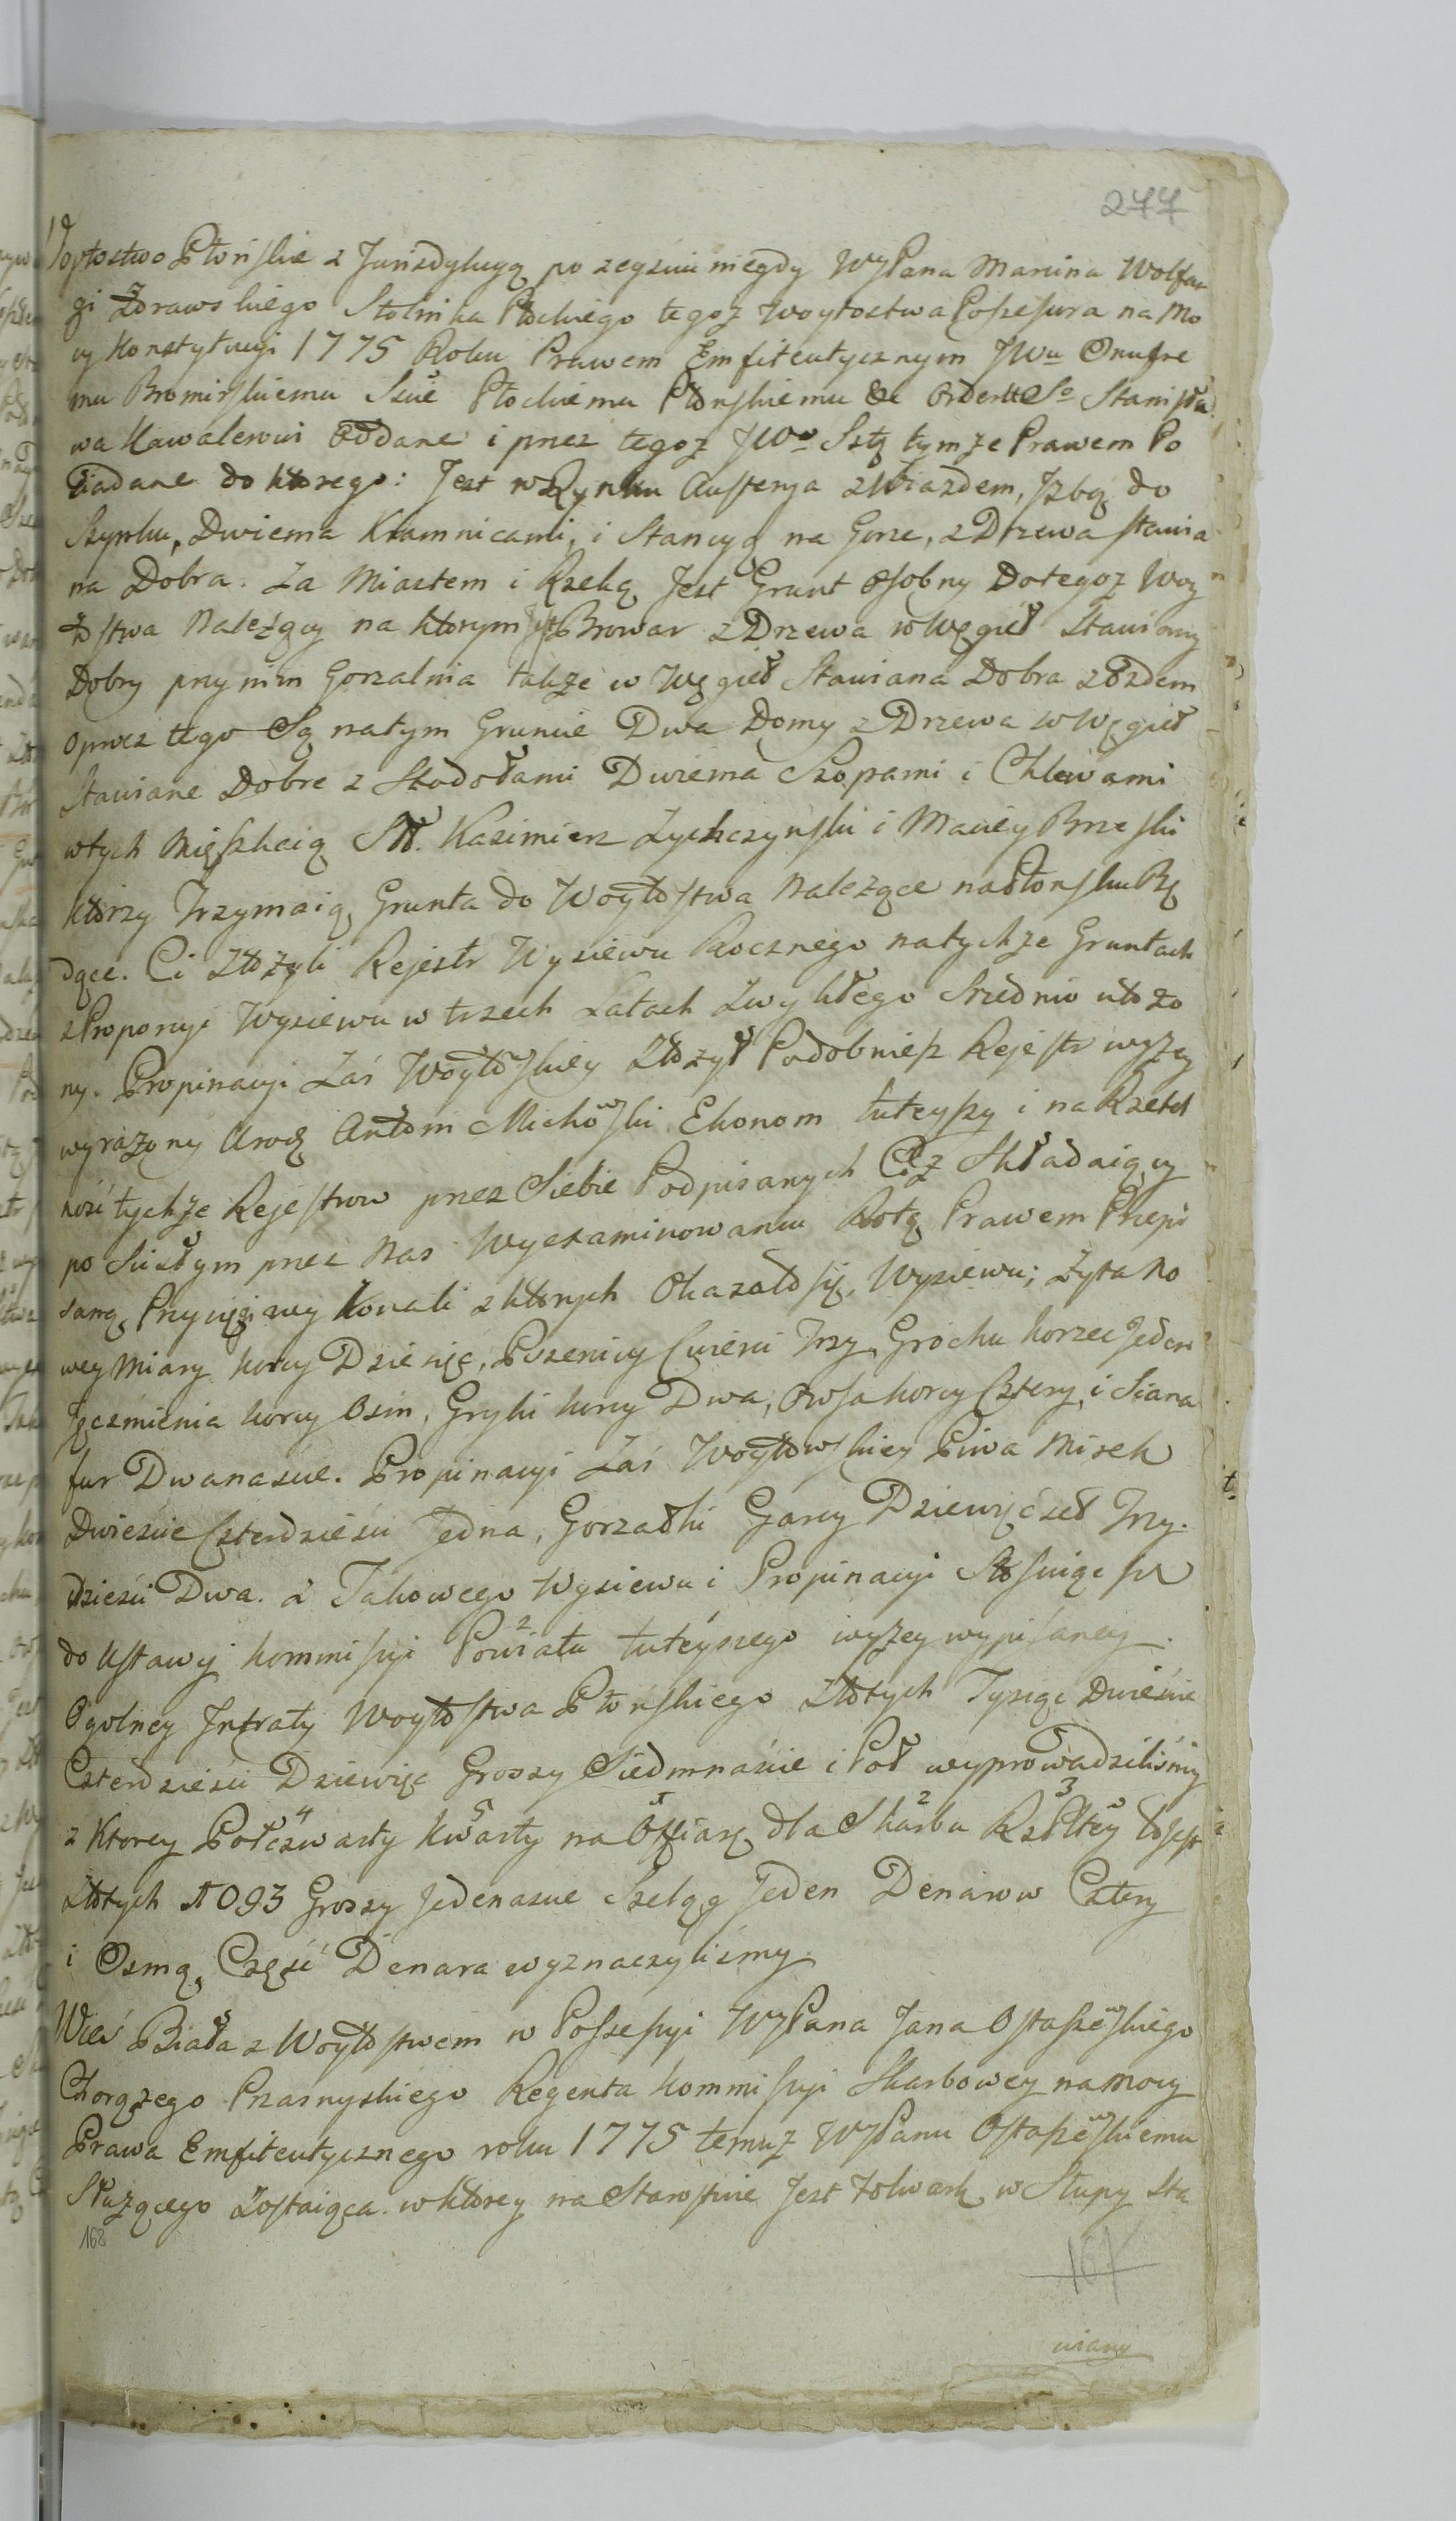 277
Woytostwo Płońskie z Jurisdykcyą po zeyściu niegdy WJPana Marcina Wolfan
gi Zdrawskiego Stolnika Płockiego tegoż Woytostwa Possesura na Mo
cy Konstytucyi 1775 Roku Prawem Emfiteutycznym JWu Onufre
mu Bromirskiemu Scie Płockiemu Płonskiemu &c Orderu So Stanisła
wa Kawalerowi Oddane i przez tegoż JWo Sstę tymże Prawem Po
siadane do ktorego: Jest w Rynku Austerya z Wiazdem, Jzbą do
Szynku, Dwiema Kramnicami, i Stancyą na Gorze, z Drzewa stawia
na Dobra. Za Miastem i Rzeką Jest Grunt Osobny Do tegoż Woy
tostwa Należący na ktorym jest Browar z Drzewa w Węgieł Stawiany
Dobry przy nim Gorzalnia także w Węgieł Stawiana Dobra z Ozdem
oprocz tego Są na tym Gruncie Dwa Domy z Drzewa w Węgieł
Stawiane Dobre z Stodołami Dwiema Szopami i Chlewami
w tych Mięszkaią Sł. Kazimierz Zychczynski i Maciey Brzeski
ktorzy Trzymaią Grunta do Woytostwa Należące na Płonsku Bę
dące. Ci Złożyli Rejestr Wysiewu Rocznego na tychże Gruntach
z Proporcyi Wysiewu w trzech Latach Zwykłego Srednio ułożo
ny. Propinacyi Zaś Woytowskiey Złożył Podobnież Rejestr wyżey
wyrażony Urodz Antoni Michowski Ekonom tuteyszy i na Rzetel
ność tychże Rejestrow przez Siebie Podpisanych Ciż Składaiący
po Scisłym przez Nas Wyexaminowaniu Rotą Prawem Przepi
saną Przysięgi wykonali z ktorych Okazało się Wysiewu; Żyta No
wey Miary korcy Dziesięć, Pszenicy Cwierci Trzy, Grochu korzec Jeden
Jęczmienia korcy Osm, Gryki korcy Dwa, Owsa korcy Cztery, i Siana
fur Dwanaście. Propinacyi Zaś Woytowskiey Piwa Misek
Dwieście Czterdzieści Jedna, Gorzałki Garcy Dziewięćset Trzy-
dzieści Dwa. a Takowego Wysiewu i Propinacyi Stosuiąc się
do Ustawy Kommissyi Powiatu tuteyszego wyżey wypisaney
Ogolney Jntraty Woytostwa Płońskiego Złotych Tysiąc Dwieście
Czterdzieści Dziewięć Groszy Siedmnaście i Poł wyprowadziliśmy
z Ktorey Połczwarty kwarty na Offiarę dla Skarbu Rzpltey to jest
Złotych 1093 Groszy Jedenascie Szeląg Jeden Denarow Cztery
i Osmą Część Denara wyznaczyliśmy.
Wieś Biała z Woytostwem w Possessyi WJPana Jana Ostaszewskiego
Chorążego Przasnyskiego Regenta Kommissyi Skarbowey na mocy
Prawa Emfiteutycznego roku 1775 temuż WJPanu Ostaszewskiemu
Służącego Zostaiąca. w ktorey na Starostwie Jest Folwark w Słupy Sta
168
167
wiany